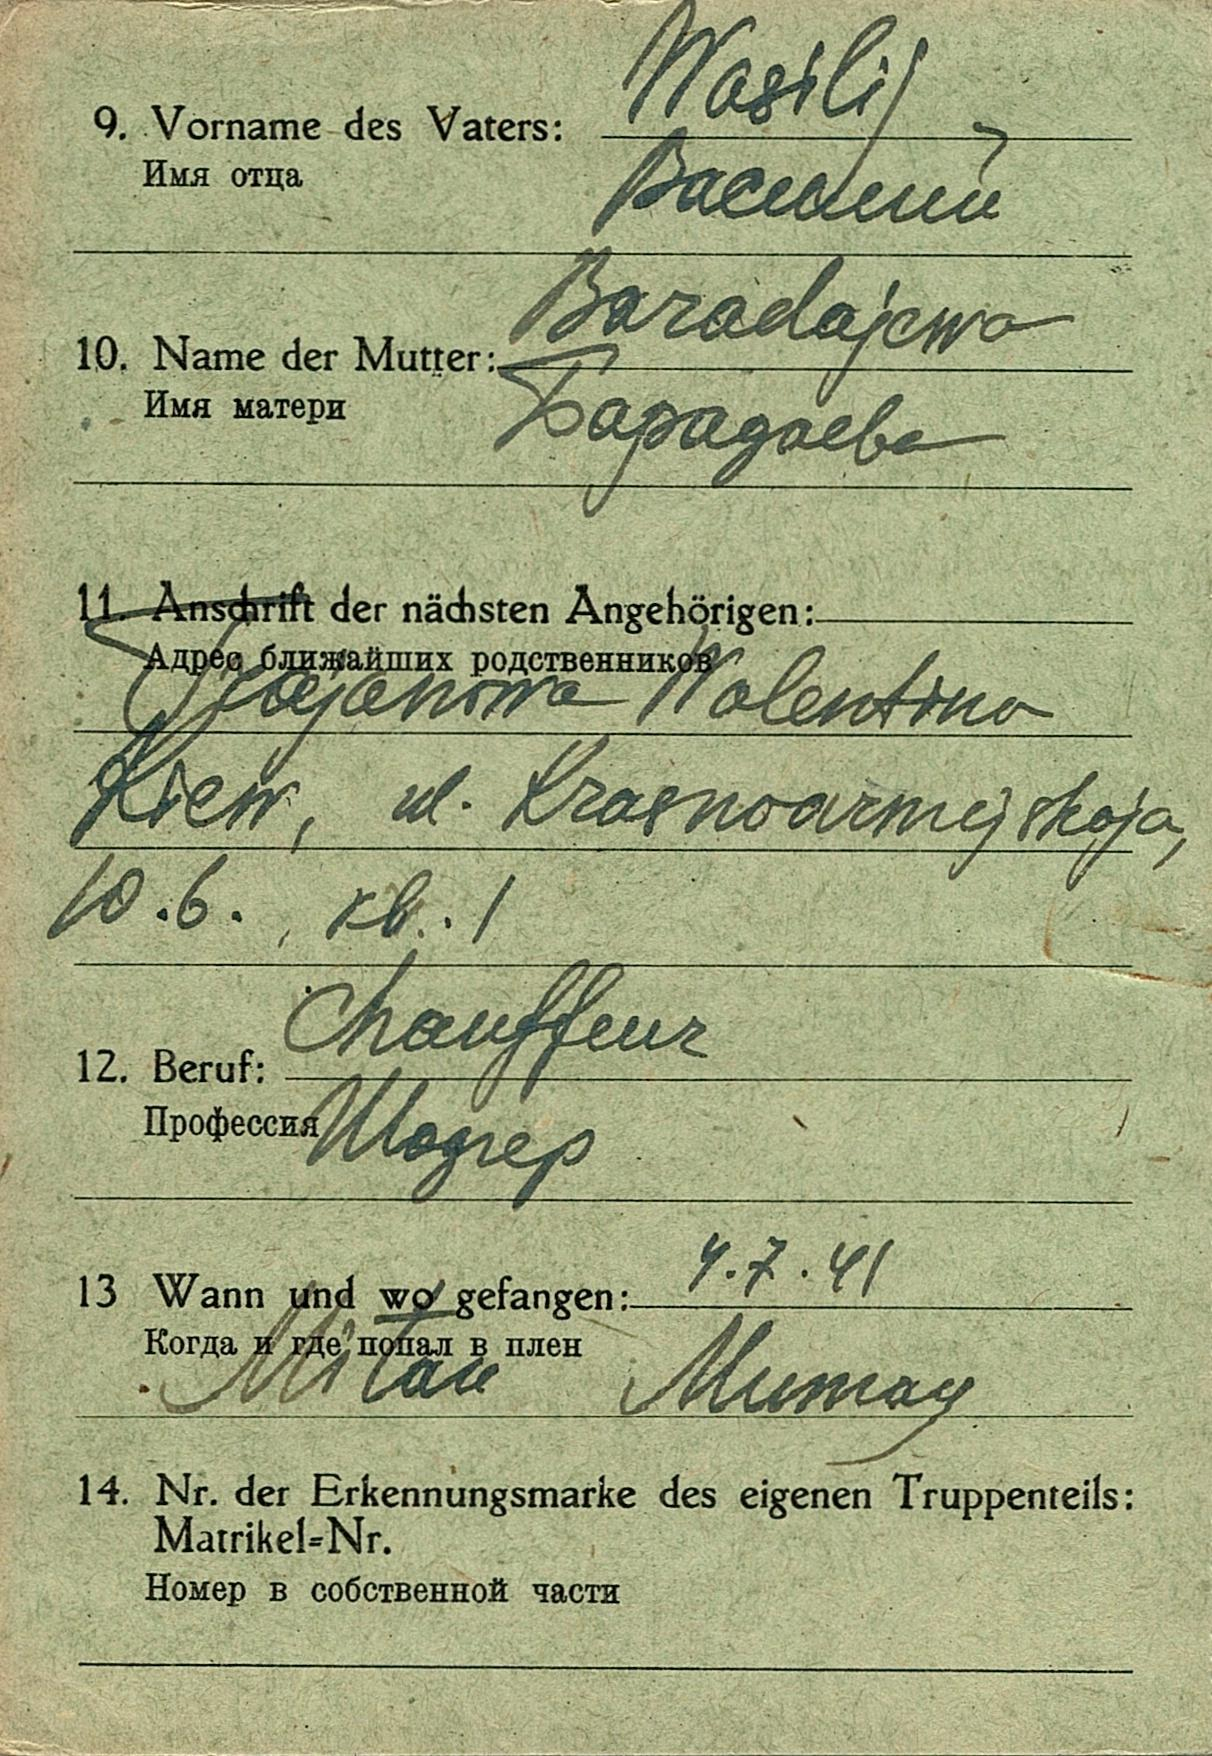 Wasilij
9. Vorname des Vaters:
Имя отца
Василий
Baradajewa
10. Name der Mutter:
Имя матери
Барадаева
11. Anschrift der nächsten Angehörigen:
Адрес ближайших родственников
Walentina
Kiew, ul. Krasnoarmejskaja,
10.6., кв. 1
Chauffeur
12. Beruf:
Профессия Шофер
13 Wann und wo gefangen: 4.7.41
Когда и где попал в плен
Mitau Митау
14. Nr. der Erkennungsmarke des eigenen Truppenteils:
Matrikel=Nr.
Номер в собственной части